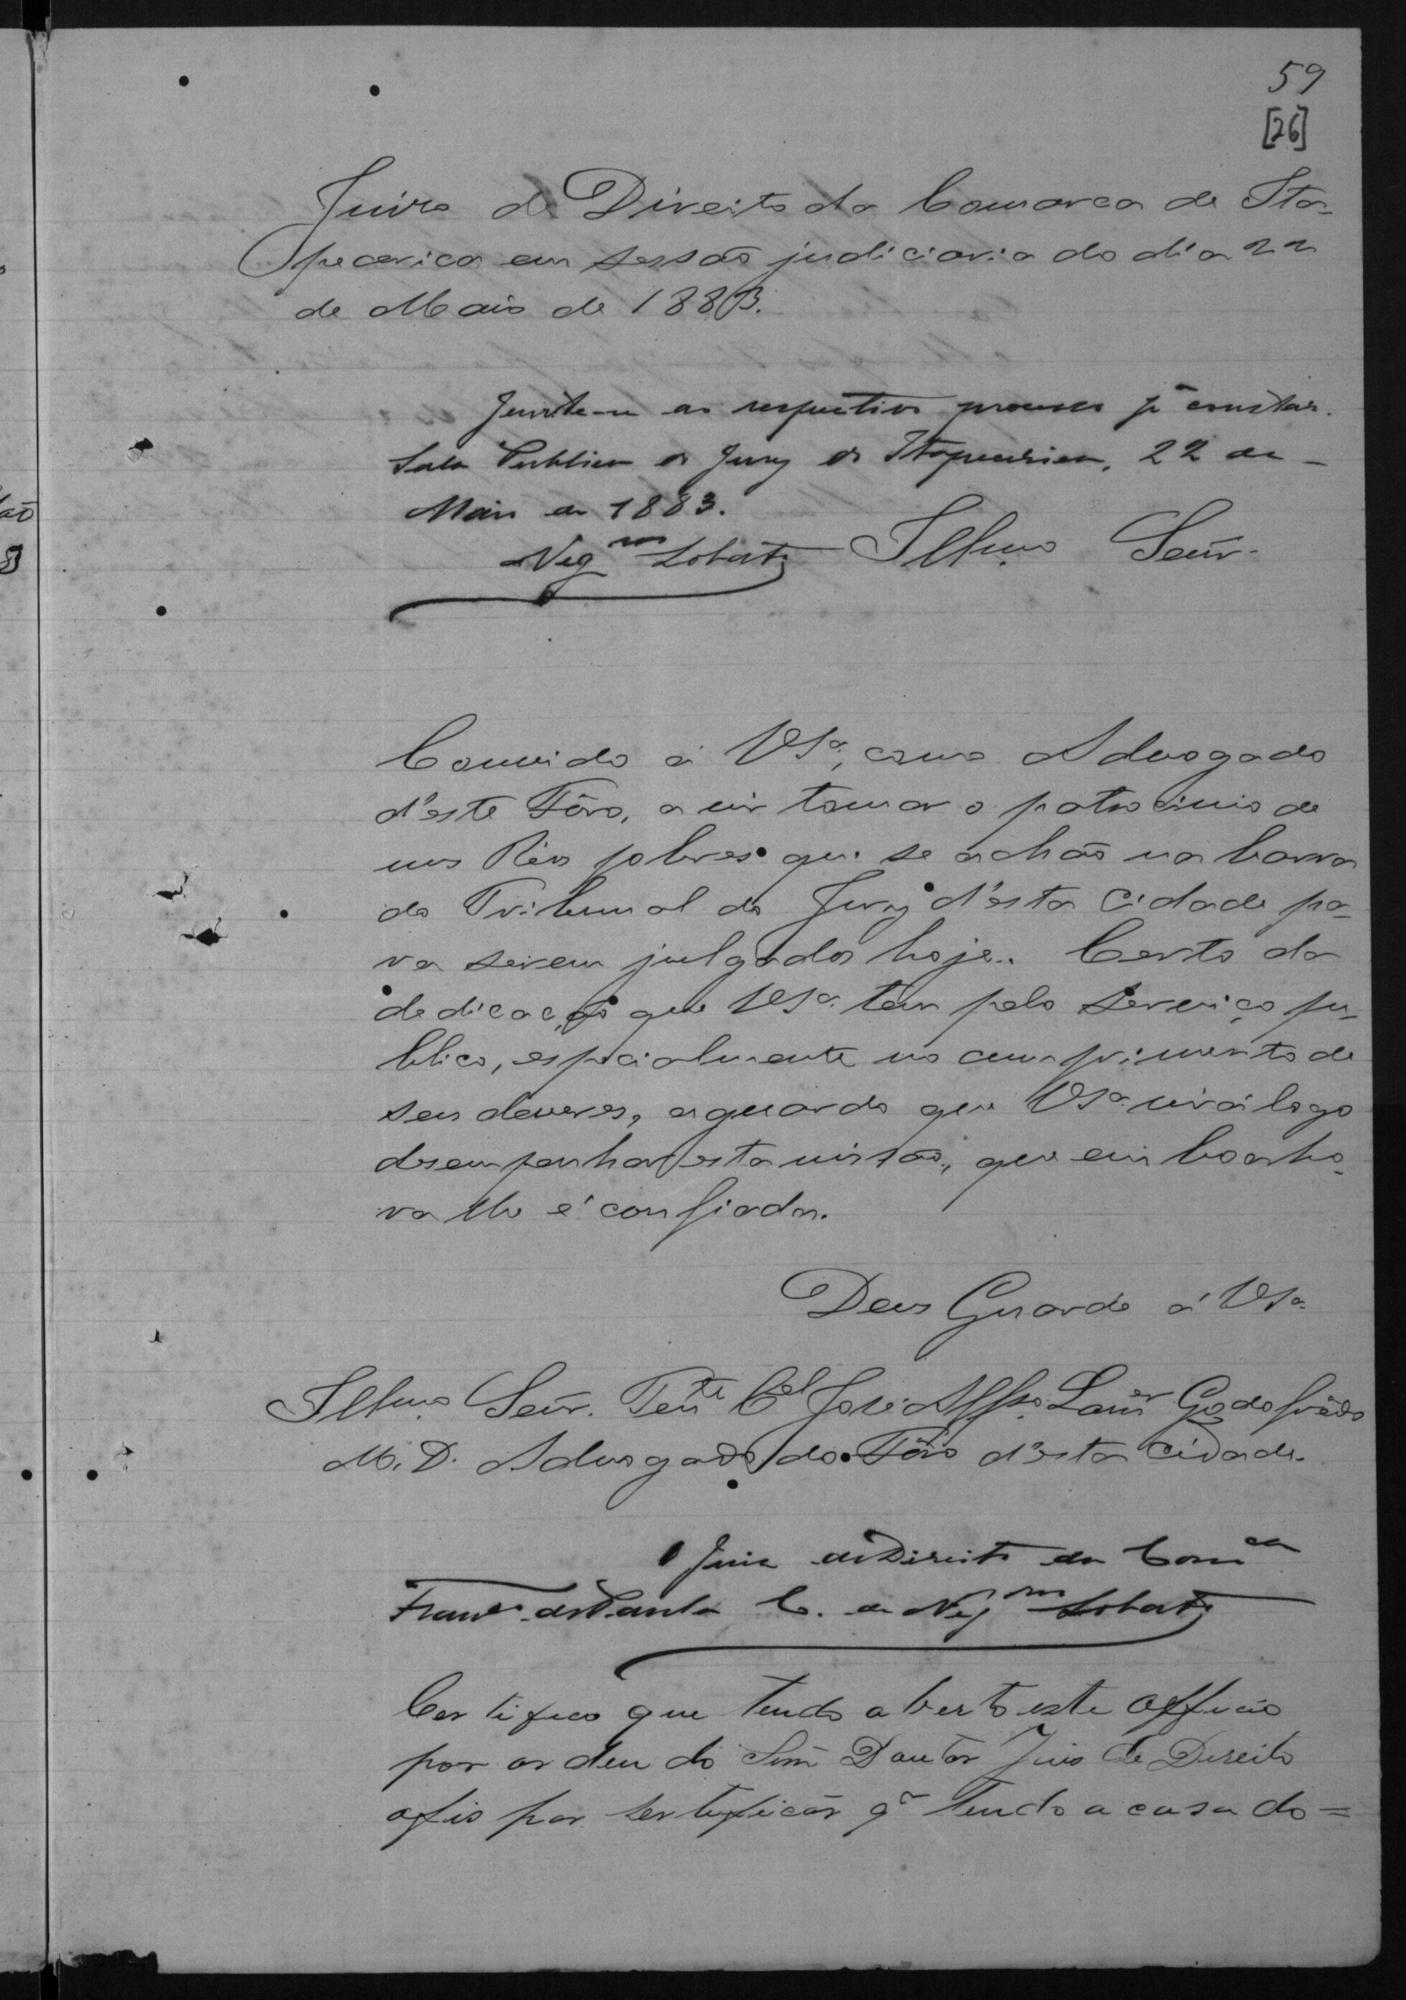 59
[26]
Juizo de Direito da Comarca de Ita-
pecerica em sessão judiciaria do dia 22
de Maio de 1883.
Junte-se ao respectivo processo pª constar.
Sala Publica do Jury de Itapecerica, 22 de
Maio de 1883.
Negros Lobato
Illmo Senr.
Convido á VSª, como Advogado
d'este Fôro, a vir tomar o patrocinio de
uns Réos pobres que se achão na barra
do Tribunal do Jury d'esta Cidade pa-
ra serem julgados hoje. Certo da
dedicação que VSª tem pelo serviço pu-
blico, especialmente no cumprimento de
seus deveres, aguardo que VSª virá logo
desempenhar esta missão, que em boa ho-
ra lhe é confiada.
Deus Guarde á VSª
Illmo Senr. Tente Cel José Affso Lamer Godofrêdo
M. D. Advogado do Fôro d'esta Cidade.
O Juiz de Direito da Comca
Franco de Paula C. de Negros Lobato
Certifico que tendo aberto este officio
por ordem do Senr Doutor Juis de Direito
afis por sertificár qe tendo a casa do=